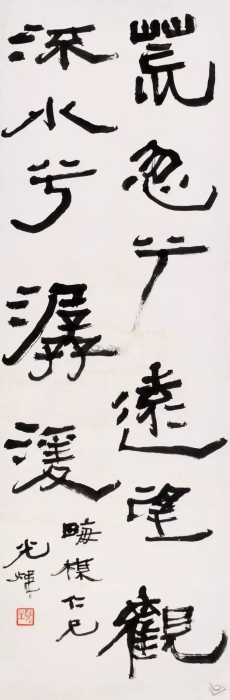 荒忽兮遠望觀
流水兮潺湲
晦楳仁兄
光煒